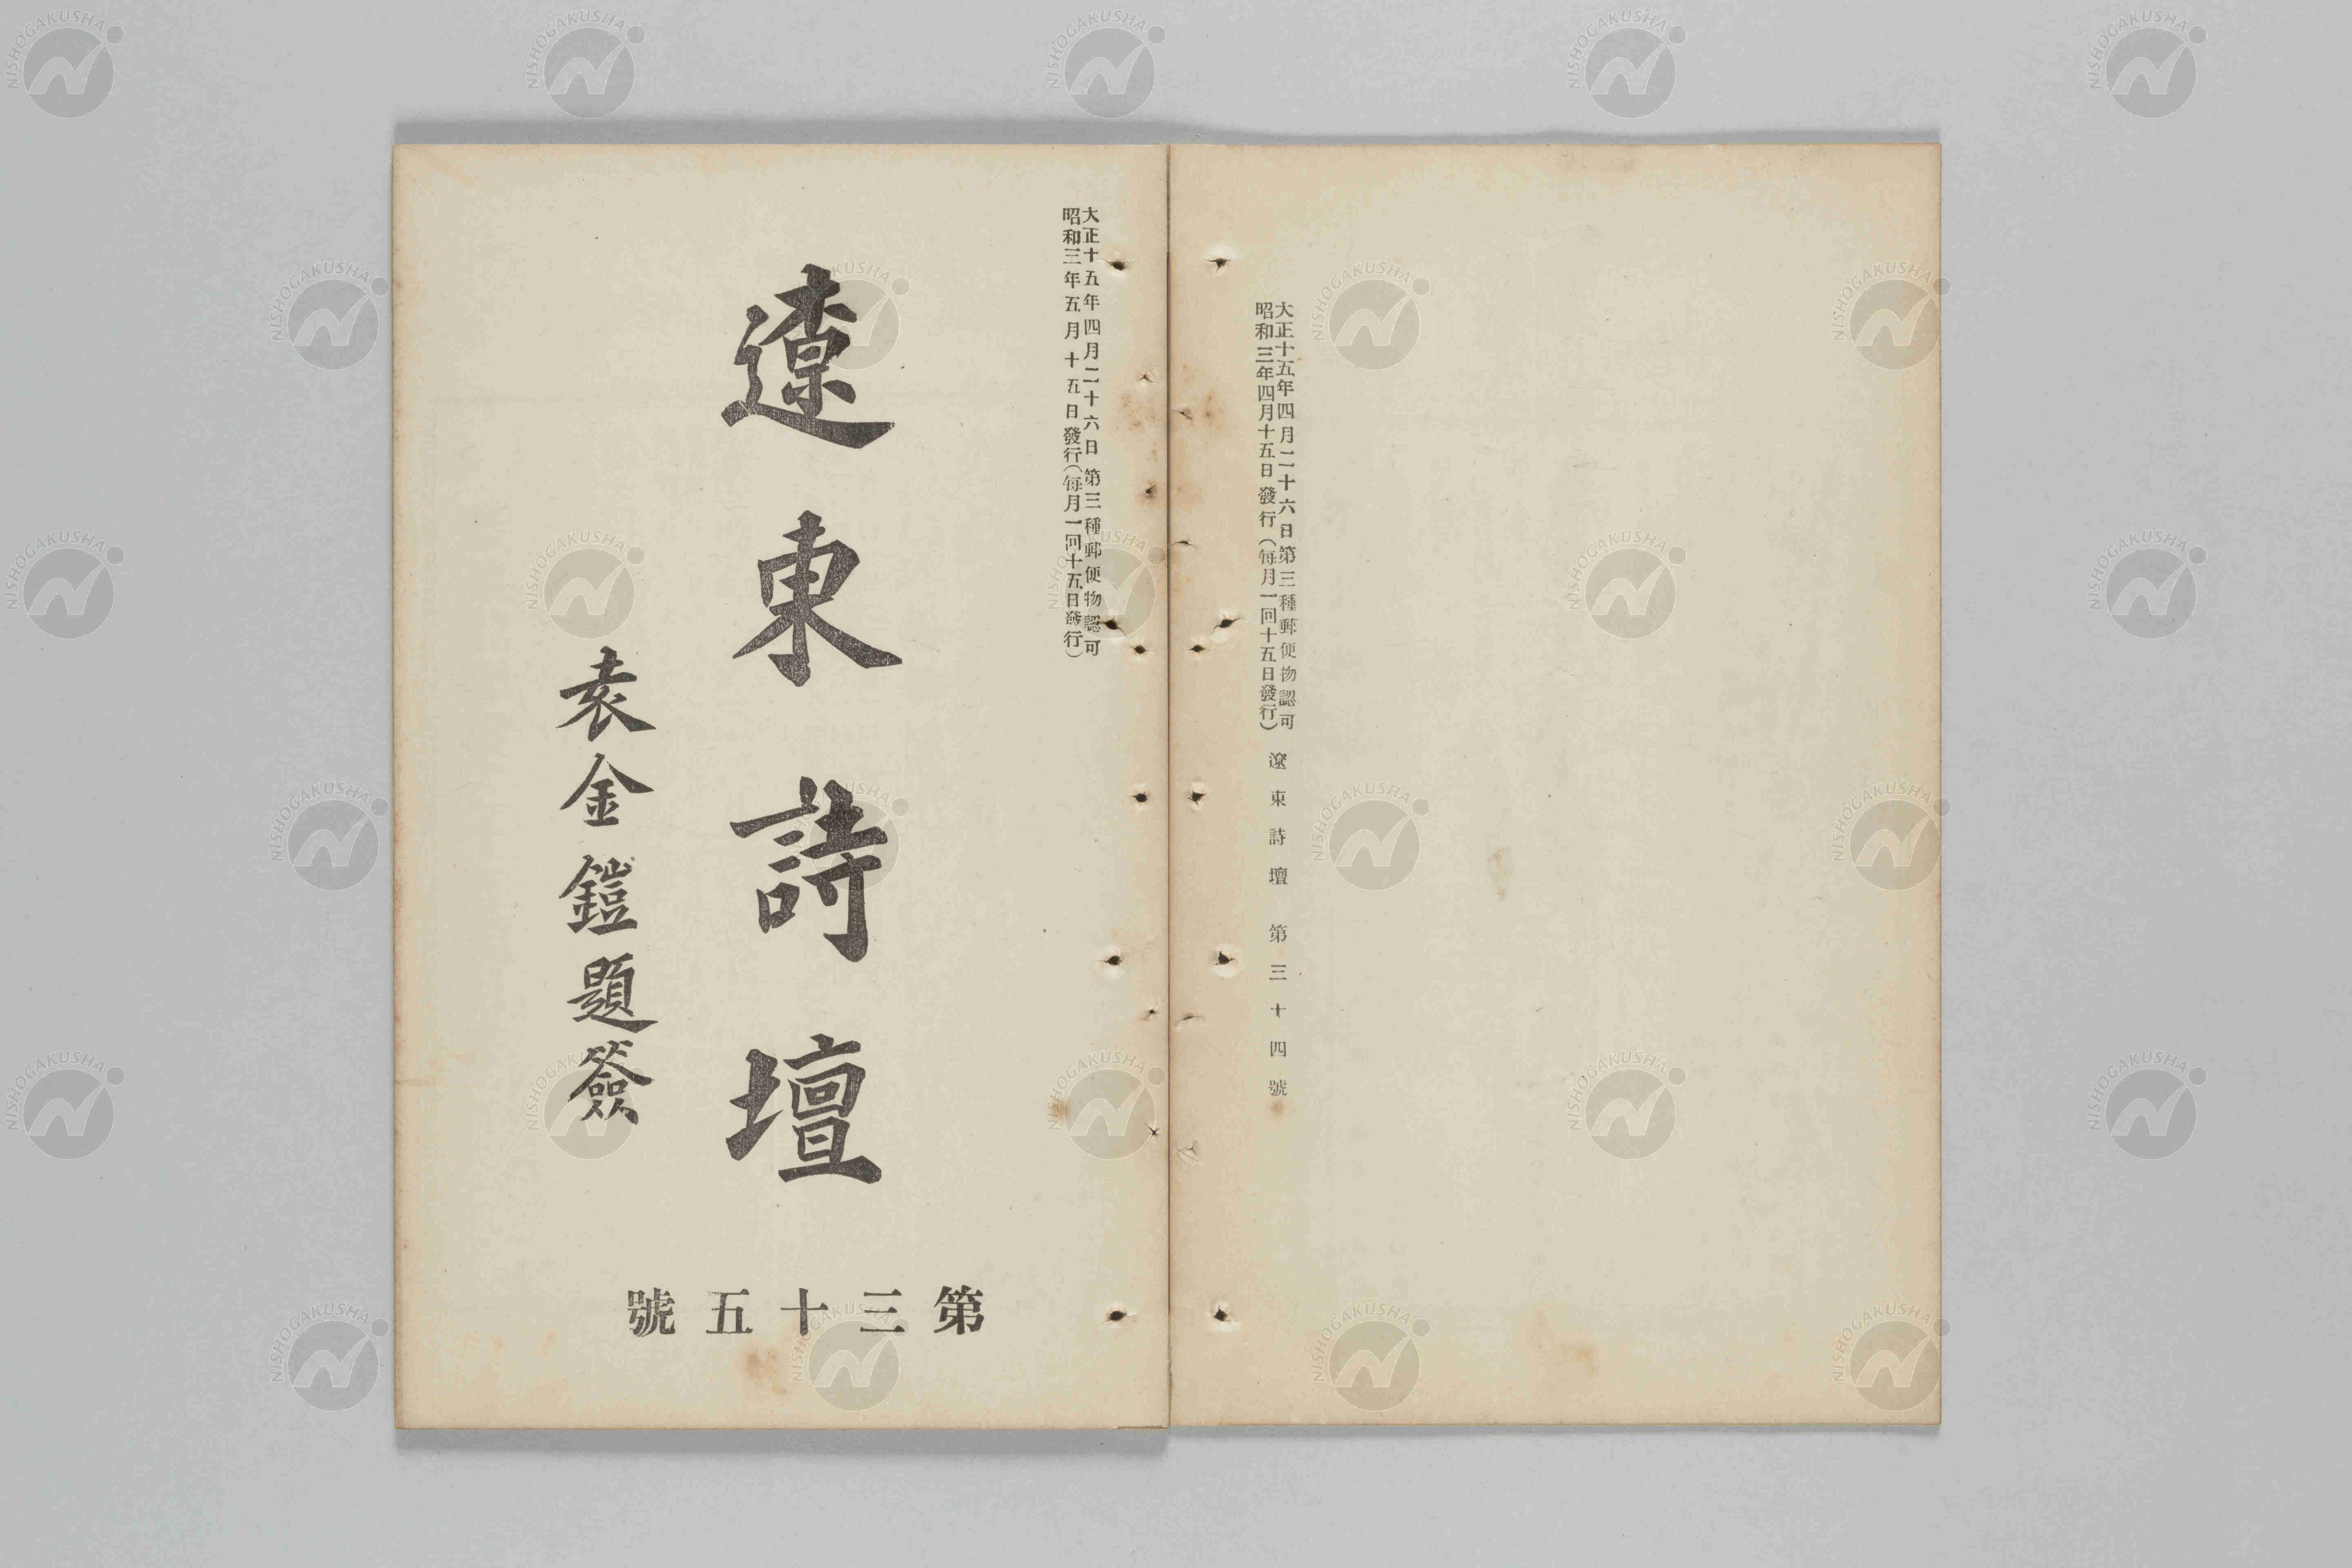 大正十五年四月二十六日第三種郵便物認可
昭和三年四月十五日發行(每月一回十五日發行)
遼東詩壇 第三十四號
大正十五年四月二十六日第三種郵便物認可
昭和三年五月十五日發行(每月一回十五日發行)
遼東詩壇
袁金鎧題簽
第三十五號
NISHOGAKUSHA